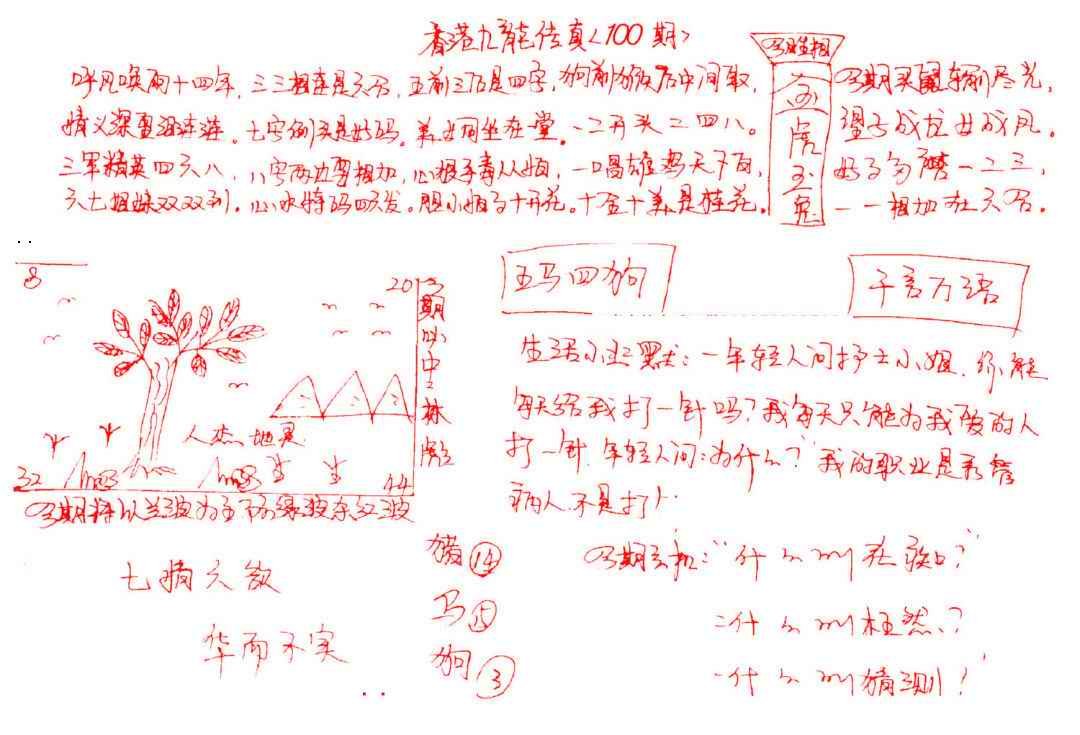 香港九龍传真<100期>
呼风唤雨十四年，三三相连是六合，五前三后是四字，狗前猴后中间取，
情义深重泪连涟。七字例头是好码。美女同坐在一堂。一二开头二四八。
三军精英四六八，八字两边要相加，心狠手毒从姐，一唱雄鸡天下白，
六七姐妹双双到。心水特码四六发。胆小姐子十开花。十全十美是桂花。
今期生相
金虎玉兔
今期买鼠输尽光，
望子成龙女成凤。
好子多磨一二三，
一一相加在六合。
8
20
今期必中生林彪
人杰地灵
32
44
今期特以兰波为主市防绿波东红波
五马四狗
千言万语
生活小幽默：一年轻人问护士小姐，你能
每天给我打一针吗？我每天只能为我爱的人
打一针，年轻人问：为什么？我的职业是看
病人不是打
七情六欲
华而不实
猪⑭
马⑮
狗③
今期玄机：“什么叫在
二什么叫枉然？
一什么叫猜测！”